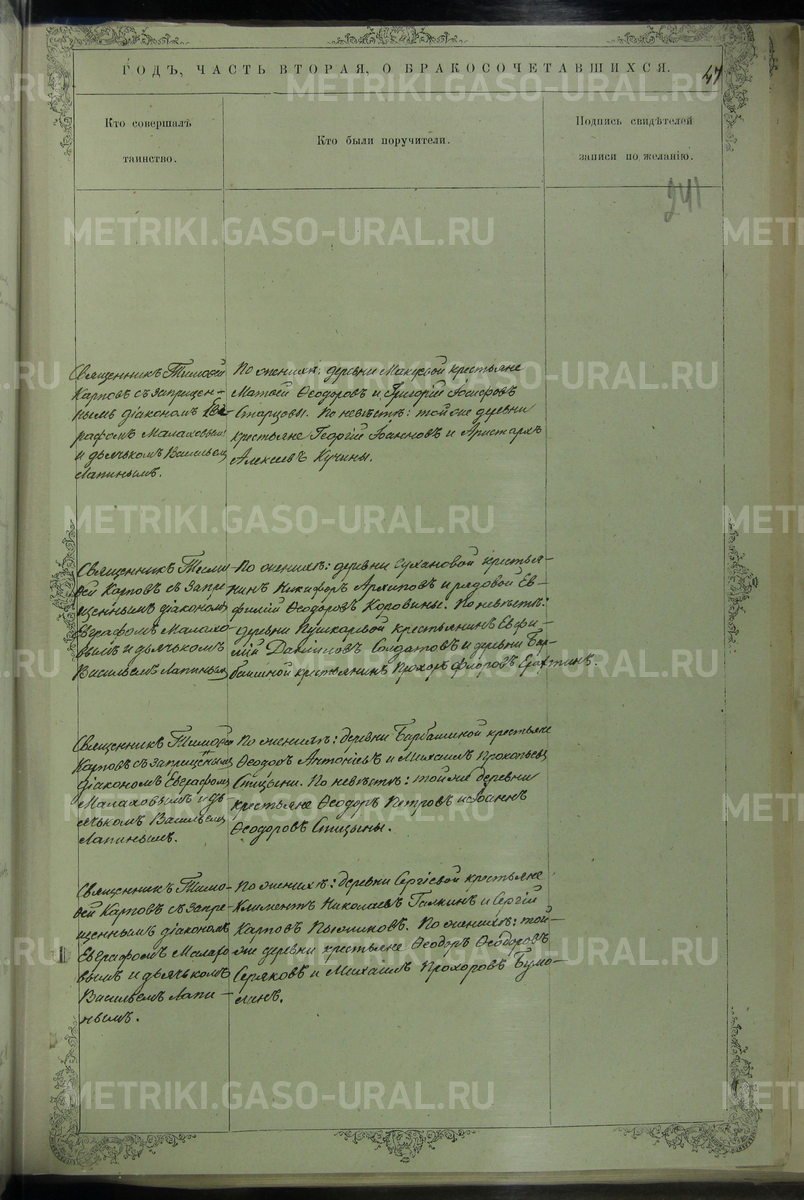 ГОДЪ, ЧАСТЬ ВТОРАЯ, О БРАКОСОЧЕТАВШИХСЯ.
47
Кто совершалъ
таинство.
Кто были поручители.
Подпись свидѣтелей
записи по желанію.
241
Священникъ Тимоѳей
Карповъ съ запрещен-
нымъ діакономъ Ев-
графомъ Малаховымъ
и дьячькомъ Васильемъ
Лапинымъ.
По женихѣ: деревни крестьяне
Матѳей Ѳеодоровъ и Григорій Іосифовъ
Старцовы. По невѣстѣ: той же деревни
крестьяне Георгій Іоанновъ и Аристархъ
Алексѣевъ Кучины.
Священникъ Тимо-
ѳей Карповъ съ запре-
щеннымъ діакономъ
Евграфомъ Малахо-
вымъ и дьячькомъ
Васильемъ Лапинымъ
По женихѣ: деревни Сухановой крестья-
нинъ Никифоръ Архиповъ и рядовой Ев-
фимій Ѳеодоровъ Коровины. По невѣстѣ:
деревни Пушкаревой крестьянинъ Евфи-
мій Солдатовъ и деревни Бар-
башиной крестьянинъ Прохоръ Флоровъ
Священникъ Тимоѳей
Карповъ съ запрещеннымъ
діакономъ Евграфомъ
Малаховымъ и дь-
ячькомъ Васильемъ
Лапинымъ.
По женихѣ: деревни Барбашиной крестьяне
Ѳеодоръ Антоніевъ и Михаилъ Прокопьевъ
Спицыны. По невѣстѣ: той же деревни
крестьяне Ѳеодоръ Петровъ и Іоаннъ
Ѳеодоровъ Спицыны.
Священникъ Тимо-
ѳей Карповъ съ запре-
щеннымъ діакономъ
Евграфомъ Малахо-
вымъ и дьячькомъ
Васильемъ Лапи-
нымъ.
По женихѣ: деревни Сергіевой крестьяне
Климентъ Николаевъ Галкинъ и Сергій
Карповъ. По женихѣ: той-
же деревни крестьяне Ѳеодоръ Ѳеодоровъ
Серяковъ и Михаилъ Прохоровъ
METRIKI.GASO-URAL.RU